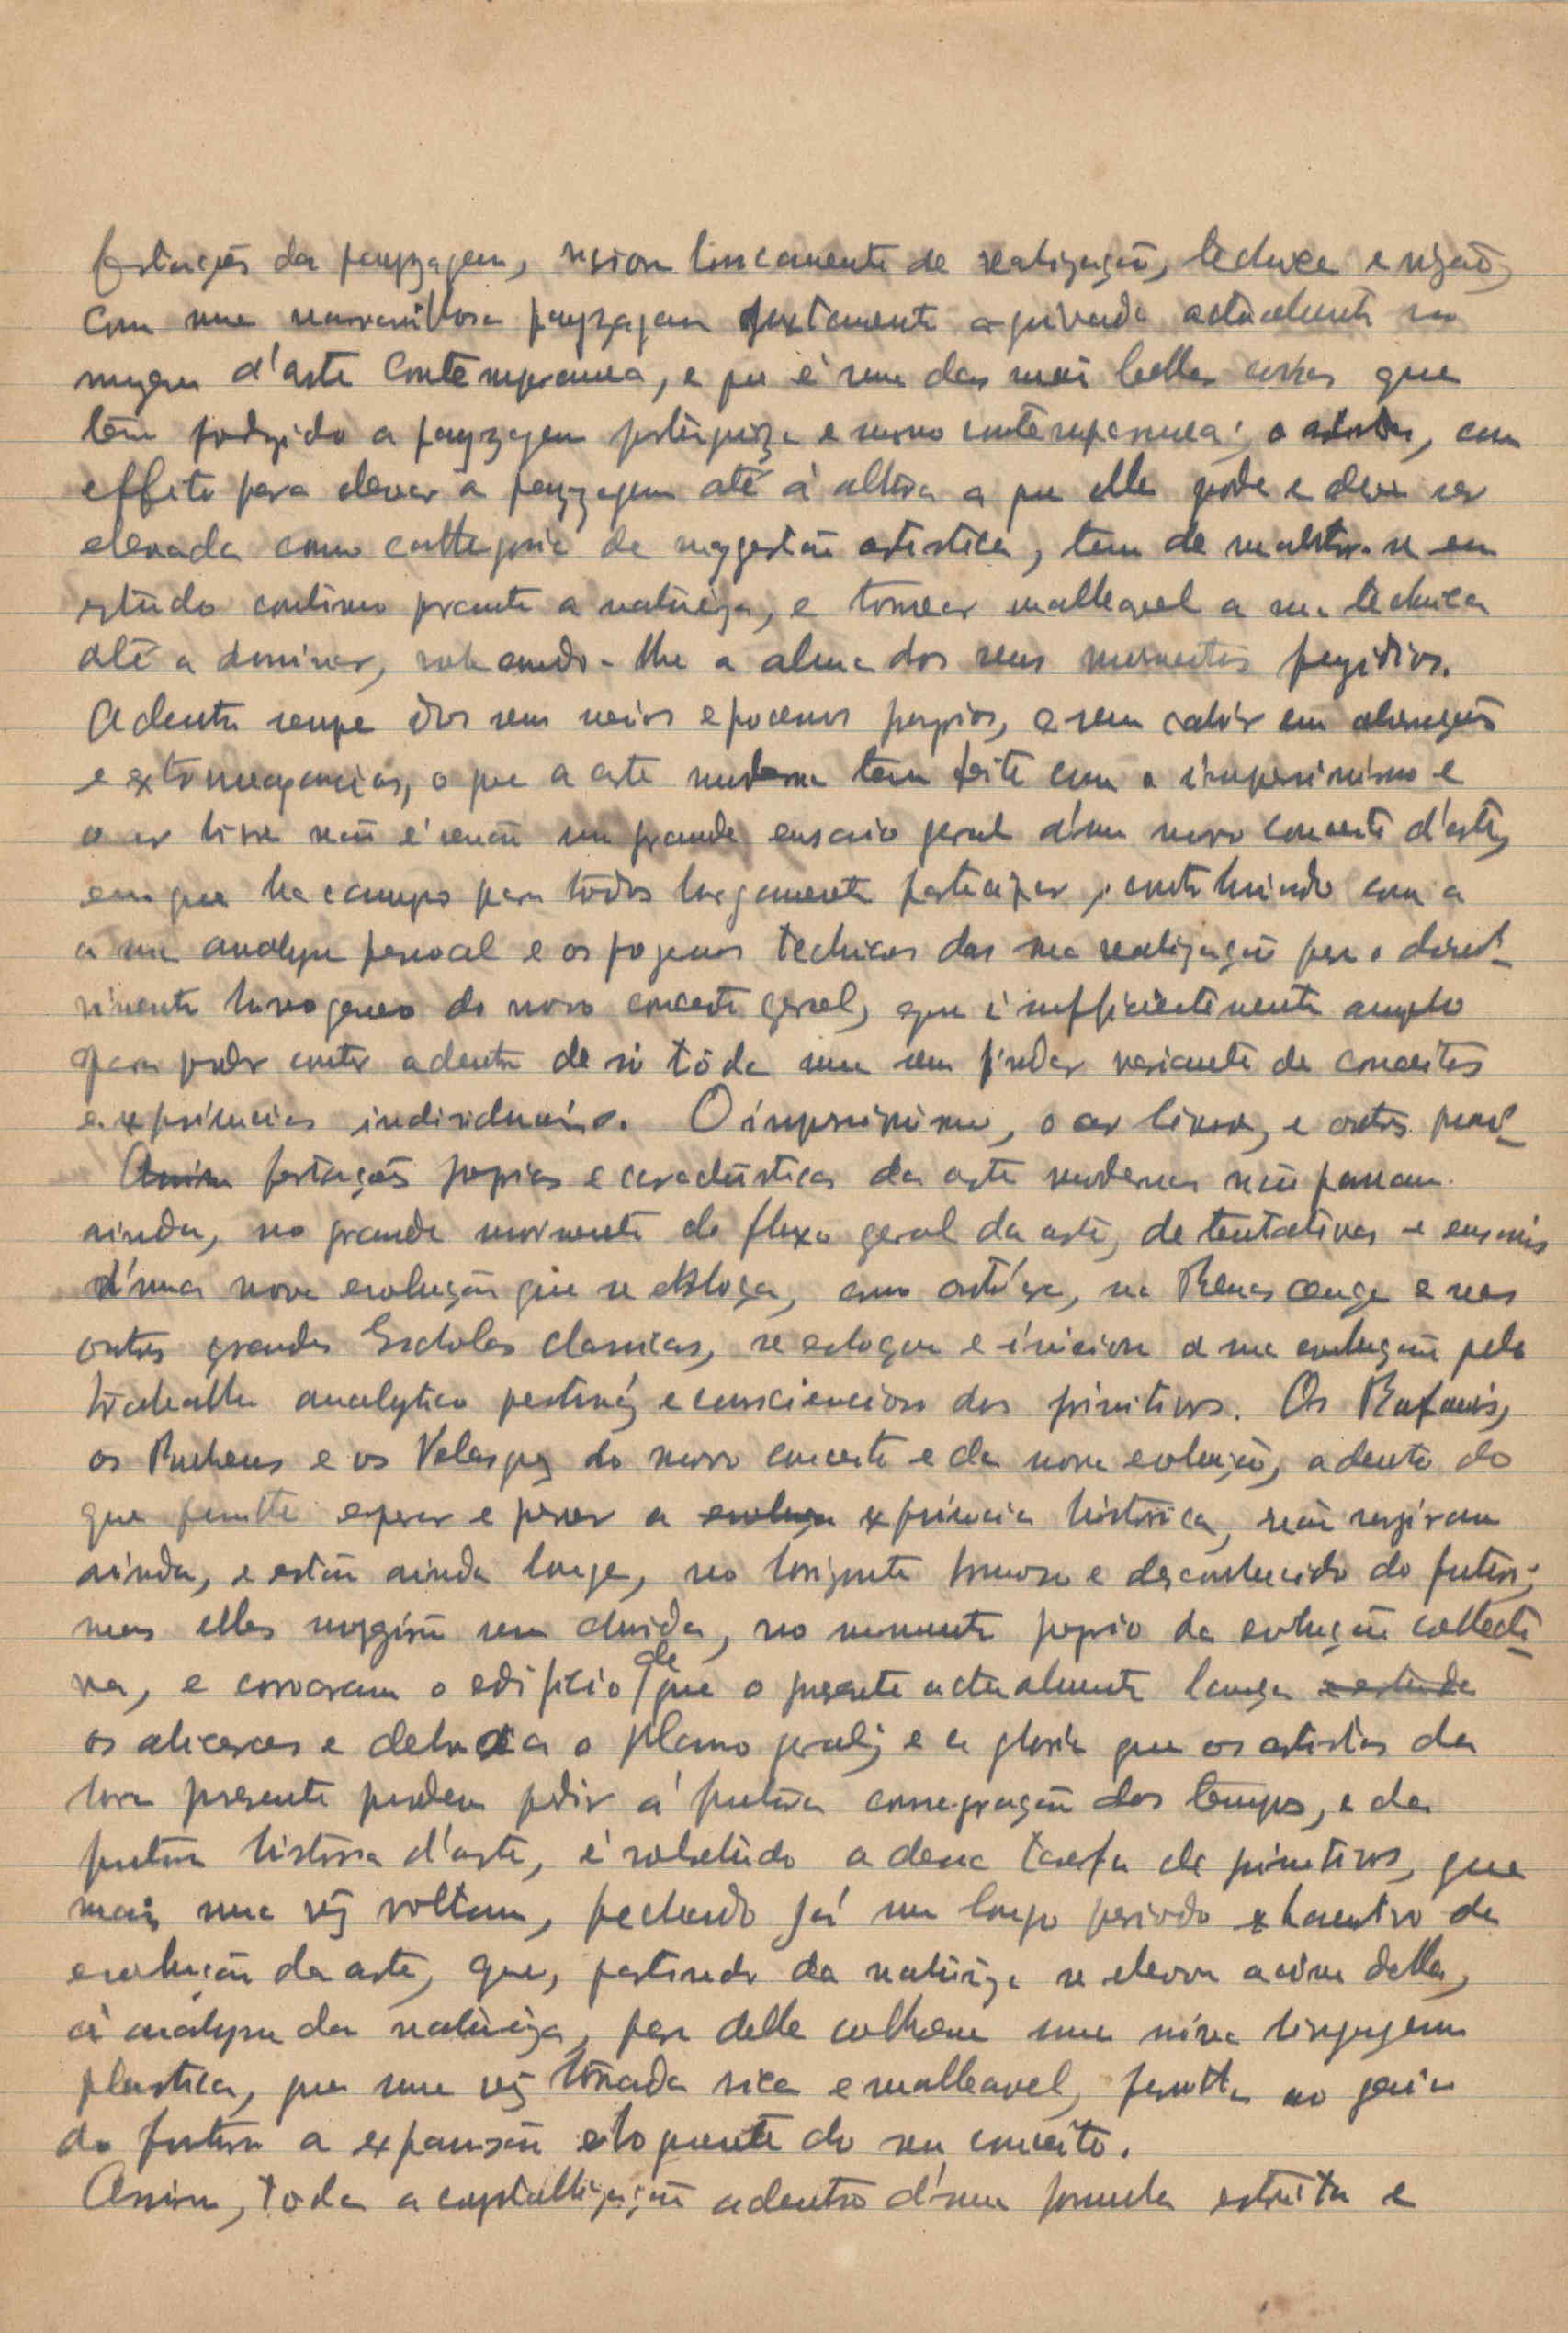 festações da payzagem, unicamente de realização, technica e visão,
com uma maravilhosa payzagem justamente arquivada actualmente no
muzeu d'arte Contemporanea, e que é uma das mais bellas coisas que
tem produzido a payzagem portugueza e mesmo contemporanea; o artista, com
effeito para elevar a payzagem até á altura a que ella pode e deve ser
elevada como cathegoria de suggestão artistica, tem de en
estudo continuo perante a natureza, e tornar malleavel a sua technica
até a dominar, roubando-lhe a alma dos seus momentos fugidios.
Adentro sempre dos seus meios e processos proprios, e sem cahir em aberrações
e extravagancias, o que a arte moderna tem feito com o impressionismo e
o ar livre não é senão um grande ensaio geral d'um novo conceito d'arte,
em que ha campo para todos largamente participar, contribuindo com a
a sua analyse pessoal e os processos technicos da sua realização para o desenvol-
vimento homogeneo do novo conceito geral, que é sufficientemente amplo
para poder conter adentro de si tôda uma sem findar variante de conceitos
e experiencias individuaes. O impressionismo, o ar livre, e outras mani-
Assim festações proprias e caracteristicas da arte moderna não passam
ainda, no grande movimento do fluxo geral da arte, de tentativas e ensaios
d'uma nova evolução que se esboça, como outr'ora, na Renascença e nas
outras grandes Escholas classicas, se esboçou e iniciou a sua evolução pelo
trabalho analytico pertinaz e consciencioso dos primitivos. Os Rafaeis,
os Rubens e os Velasquez do novo conceito e da nova evolução, adentro do
que permitte esperar e prever a evoluça experiencia historica, não surgiram
ainda, e estão ainda longe, no horizonte brumoso e desconhecido do futuro;
mas elles surgirão sem duvida, no momento proprio da evolução collecti-
va, e coroaram o edificio de que o presente actualmente lança
os alicerces e debuxa o plano geral; e a gloria que os artistas da
hora presente podem pedir á futura consagração dos tempos, e da
futura historia d'arte, é sobretudo a dessa tarefa de primitivos, que
mais uma vez voltam, fechando já um longo periodo exhaustivo da
evolução da arte, que, partindo da natureza se elevou acima della,
á analyse da natureza, para della colherem uma nova linguagem
plastica, que uma vez tornada rica e malleavel, permitta ao genio
do futuro a expansão eloquente do seu conceito.
Assim, toda a crystallização adentro d'uma formula estreita e